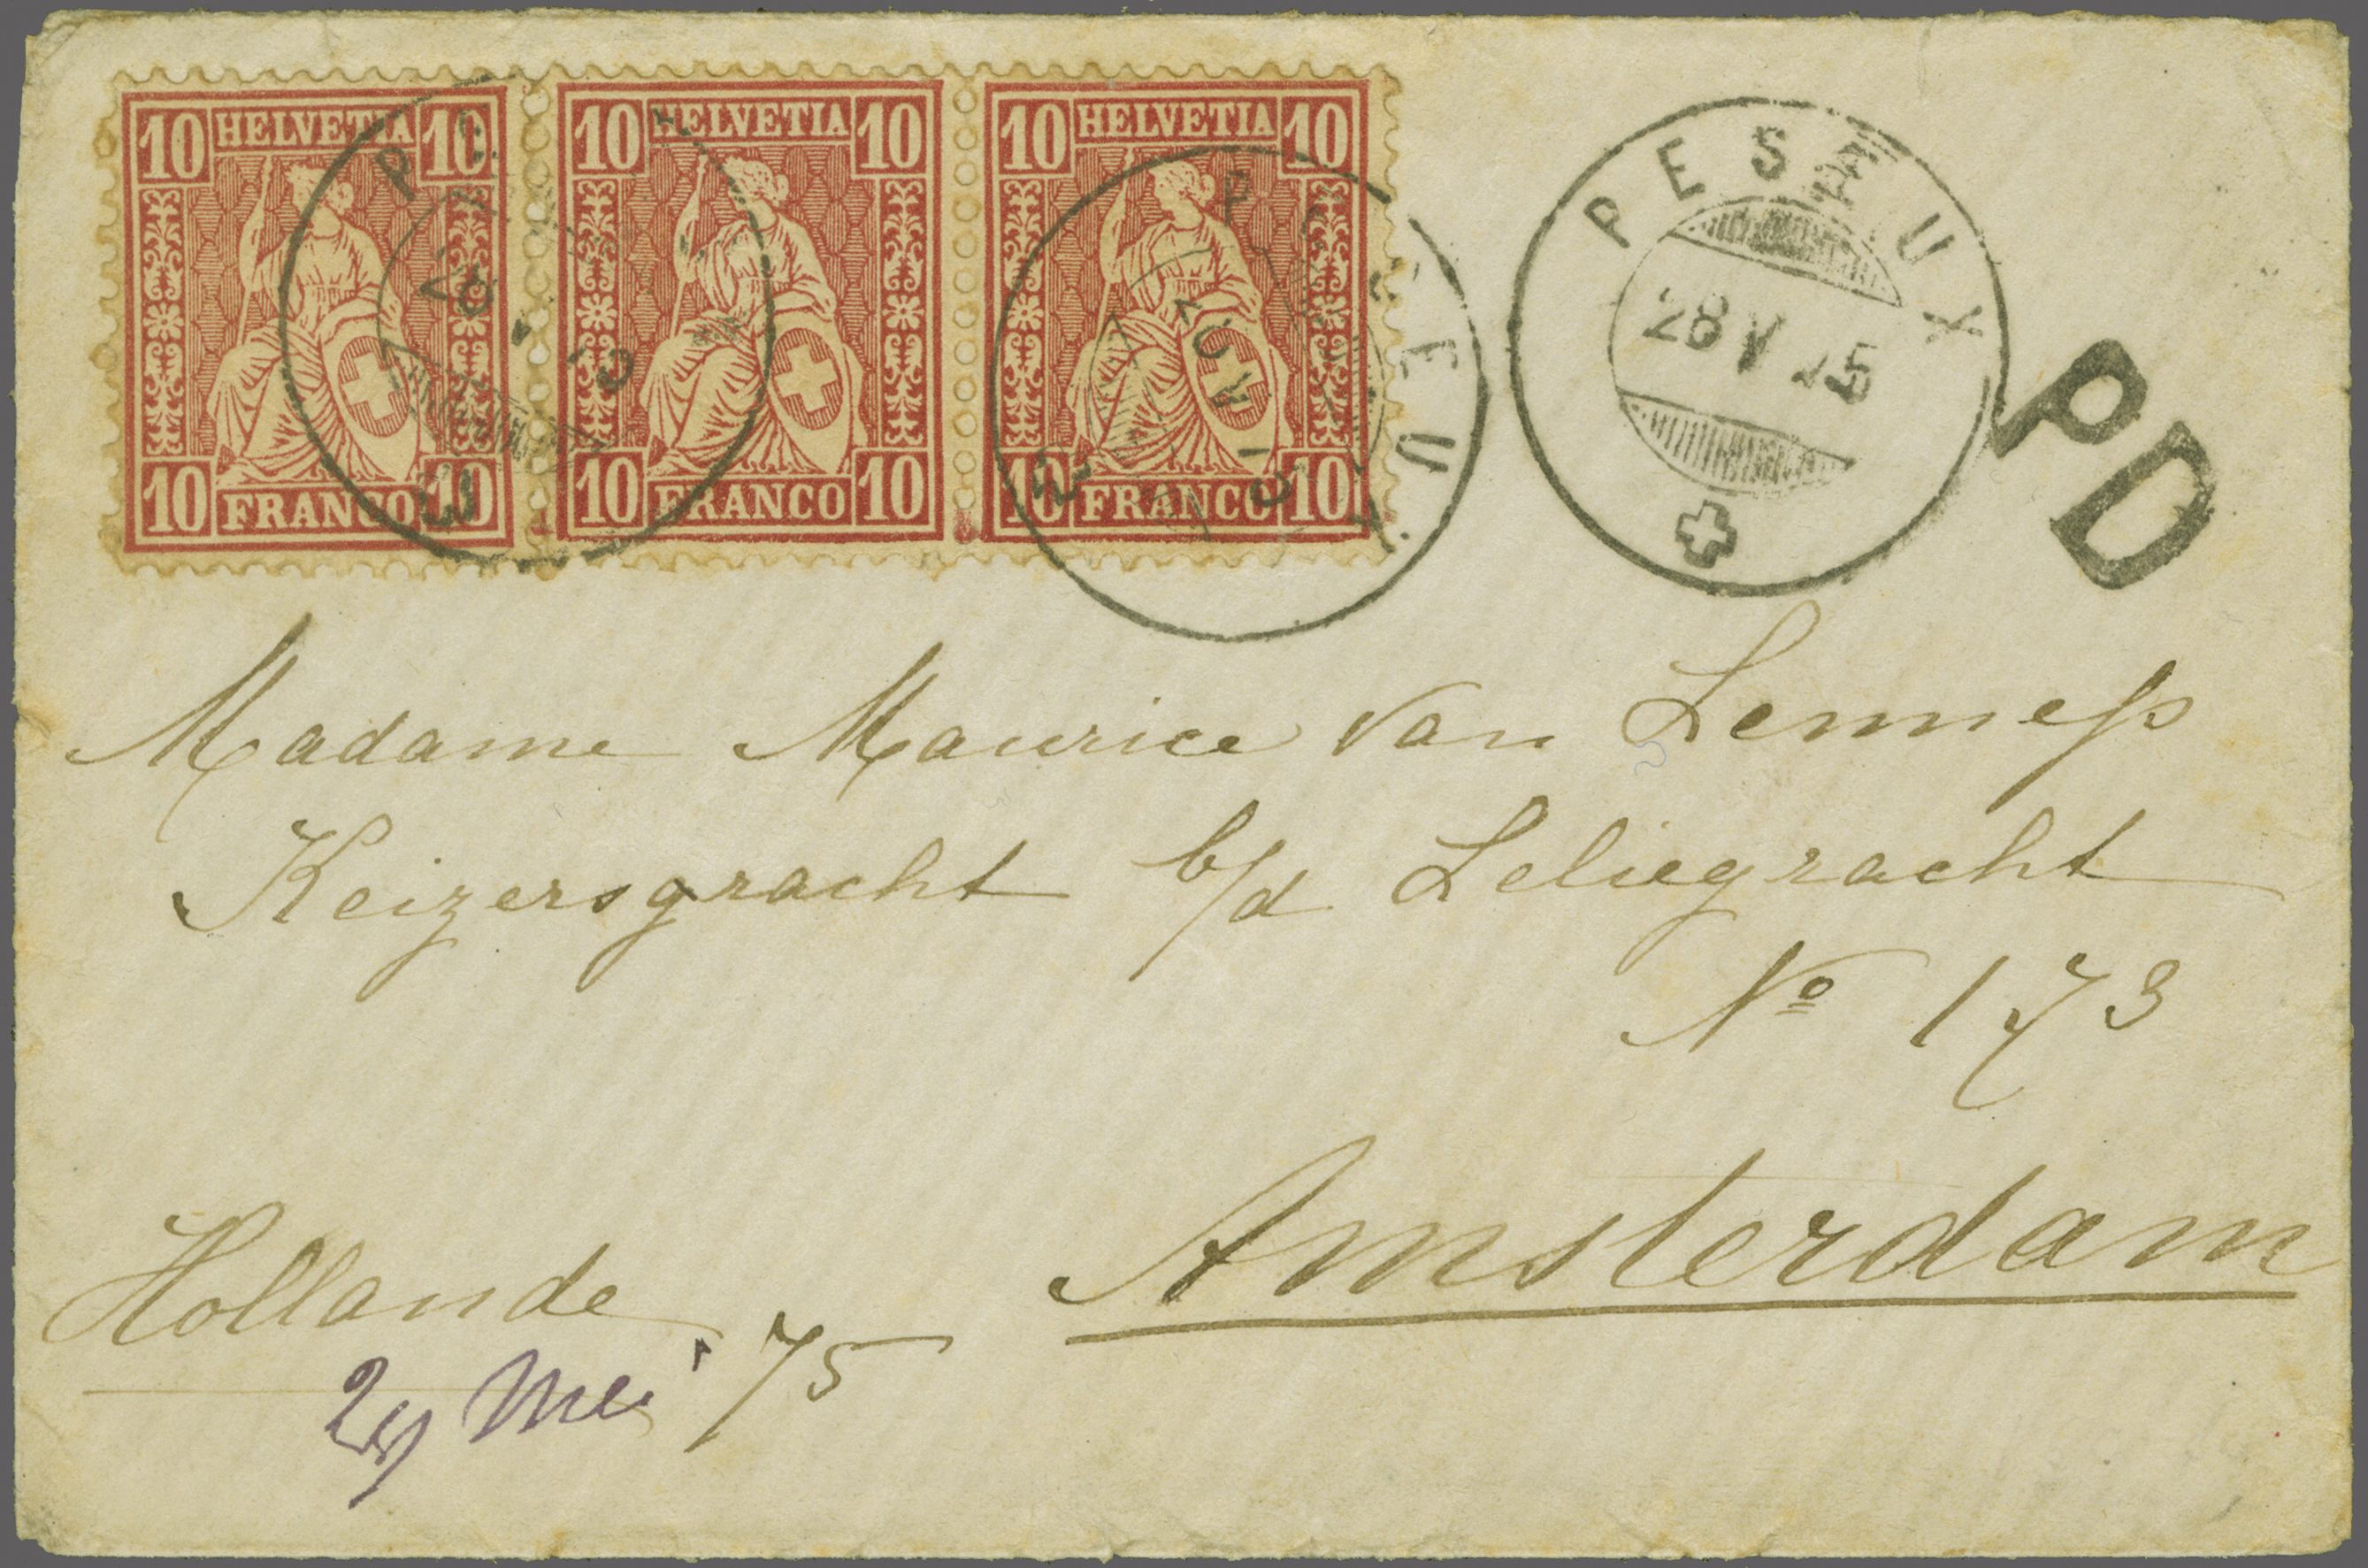 10 HELVETIA 10
10 FRANCO 10
10 HELVETIA 10
10 FRANCO 10
10 HELVETIA 10
10 FRANCO 10
PESEUX
28 V 75
PESEUX
PD
Madame Maurice van Lennep
Keizersgracht b/d Leliegracht
No 173
Amsterdam
Hollande
Mei 75